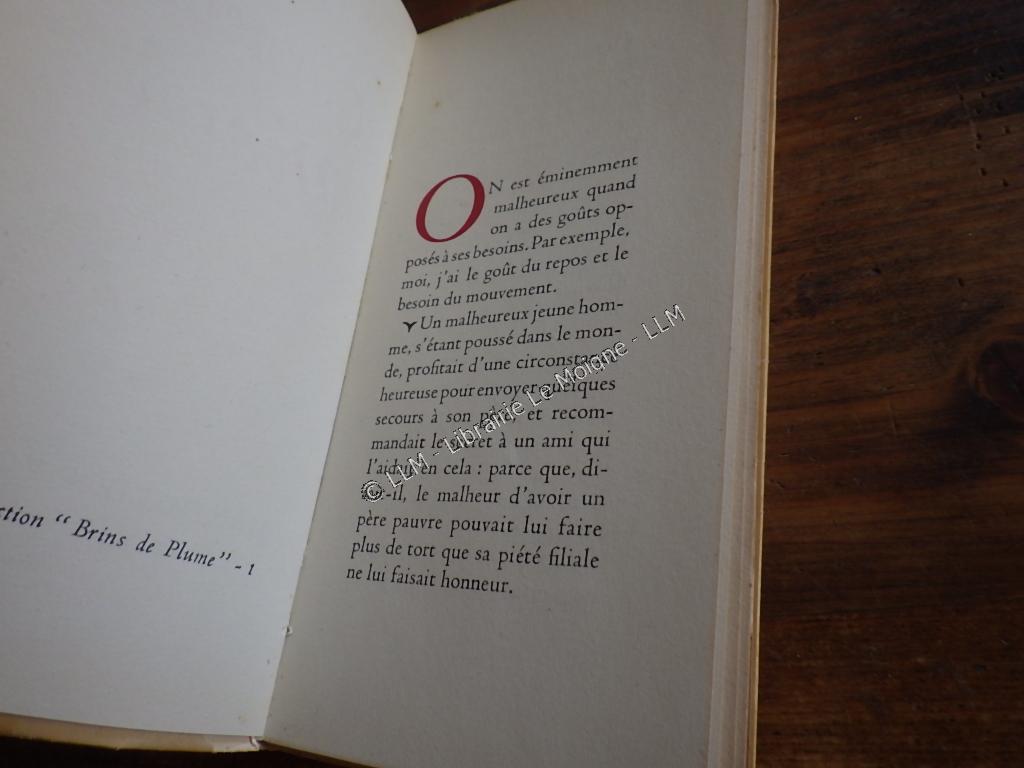 ction " Brins de Plume" - 1
ON est éminemment
malheureux quand
on a des goûts op-
posés à ses besoins. Par exemple,
moi, j'ai le goût du repos et le
besoin du mouvement.
Un malheureux jeune hom-
me, s'étant poussé dans le mon-
de, profitait d'une circonstance
heureuse pour envoyer quelques
secours à son père, et recom-
mandait le secret à un ami qui
l'aidait en cela : parce que, di-
sait-il, le malheur d'avoir un
père pauvre pouvait lui faire
plus de tort que sa piété filiale
ne lui faisait honneur.
© LLM - Librairie Le Moigne - LLM